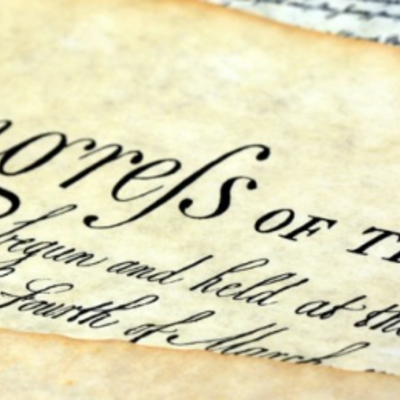 ongreſs OF TH
begun and held at the
Fourth of March